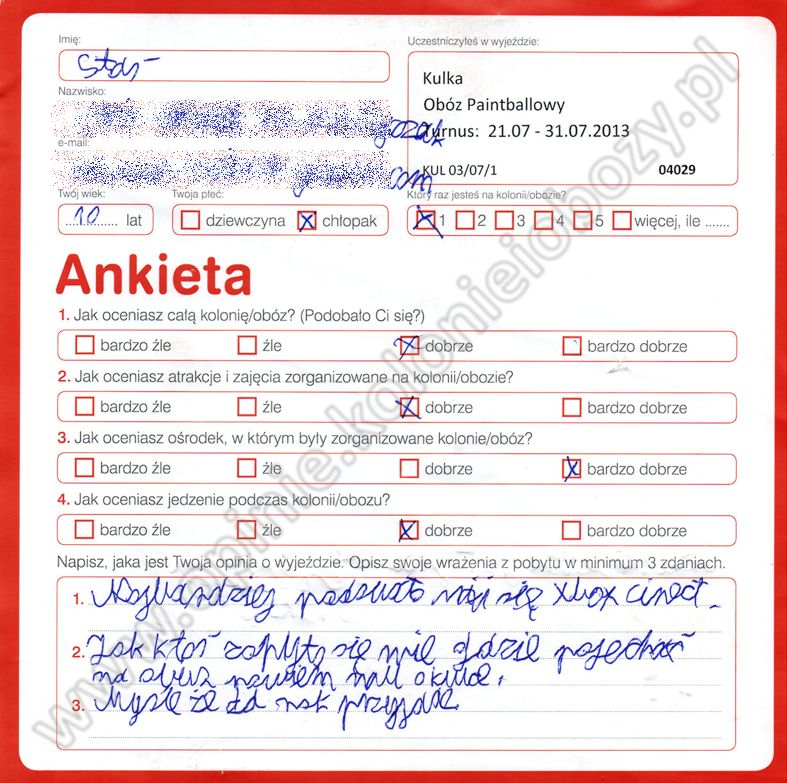 Imię:
Uczestniczyłeś w wyjeździe:
Nazwisko:
Kulka
Obóz Paintballowy
Turnus: 21.07 - 31.07.2013
e-mail:
com
KUL 03/07/1 04029
Twój wiek: Twoja płeć: Który raz jesteś na kolonii/obozie?
10 lat dziewczyna chłopak 1 2 3 4 5 więcej, ile .......
Ankieta
1. Jak oceniasz całą kolonię/obóz? (Podobało Ci się?)
bardzo źle źle dobrze bardzo dobrze
2. Jak oceniasz atrakcje i zajęcia zorganizowane na kolonii/obozie?
bardzo źle źle dobrze bardzo dobrze
3. Jak oceniasz ośrodek, w którym były zorganizowane kolonie/obóz?
bardzo źle źle dobrze bardzo dobrze
4. Jak oceniasz jedzenie podczas kolonii/obozu?
bardzo źle źle dobrze bardzo dobrze
Napisz, jaka jest Twoja opinia o wyjeździe. Opisz swoje wrażenia z pobytu w minimum 3 zdaniach.
1. się Xbox cinect.
2. Jak ktoś się mie gdzie pojechać
na
3. Myśle że za rok przyjade
www.opinie.kolonieiobozy.pl